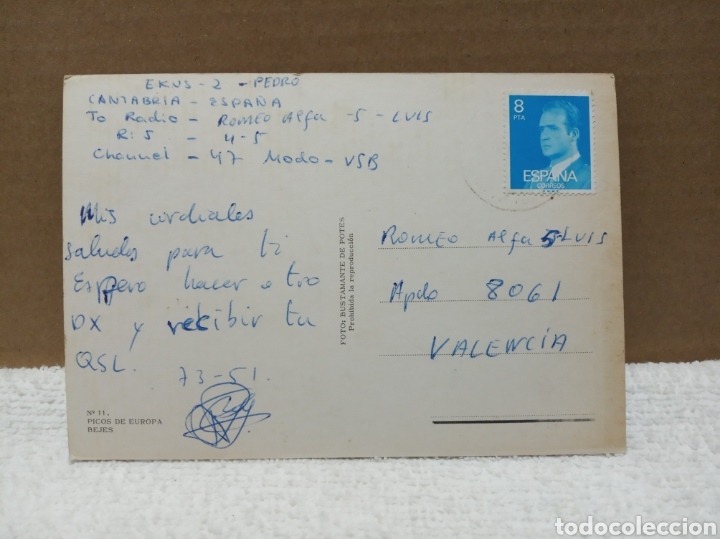 EKUS-2 - PEDRO
CANTABRIA - ESPAÑA
To Radio - ROMEO Alfa -5 - LUIS
R: 5 - 4-5
Channel - 47 Modo - VSB
Mis cordiales
saludos para ti
Espero hacer otro
DX y recibir tu
QSL.
73-51.
Nº 11.
PICOS DE EUROPA
BEJES
FOTO: BUSTAMANTE DE POTES
Prohibida la reproducción
8
PTA
ESPAÑA
CORREOS
ROMEO Alfa 5-LUIS
Apdo 8061
VALENCIA
todocoleccion